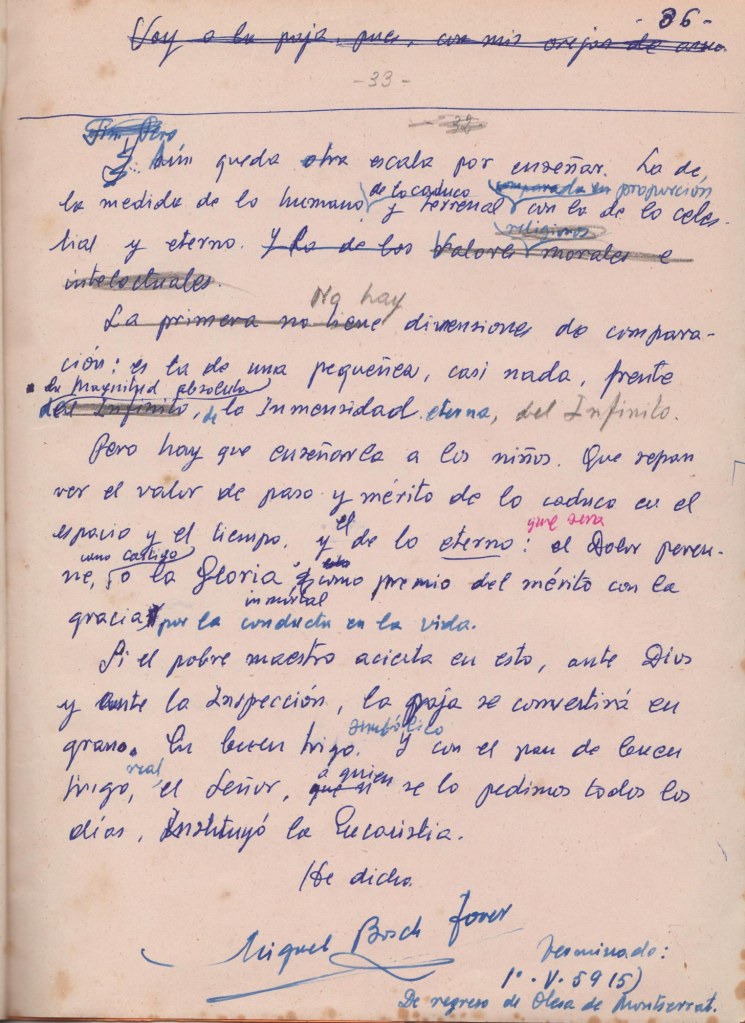 - 36 -
Voy a la paja, pues, con mis orejas de asno.
- 33 -
Pero
Y aún queda otra escala por enseñar. La de
la medida de lo humano, de lo caduco y terrenal comparada en proporción con la de lo celes-
tial y eterno. Y La de los Valores religiosos morales e
intelectuales.
No hay
La primera no tiene dimensiones de compara-
ción: es la de una pequeñez, casi nada, frente
la Magnitud absoluta
del Infinito, de la Inmensidad eterna, del Infinito.
Pero hay que enseñarla a los niños. Que sepan
ver el valor de paso y mérito de lo caduco en el
espacio y el tiempo, y el de lo eterno: que sera el Dolor peren-
ne, como castigo o la Gloria como premio del mérito con la
inmortal
gracia por la conducta en la vida.
Si el pobre maestro acierta en esto, ante Dios
y ante la Inspección, la paja se convertirá en
grano. En buen trigo simbólico. Y con el pan de buen
trigo, real, el Señor, que si a quien se lo pedimos todos los
días, Instituyó la Eucaristia.
He dicho.
Miguel Bosch Jover
Terminado:
1º. V. 59 (5)
De regreso de Olesa de Montserrat.